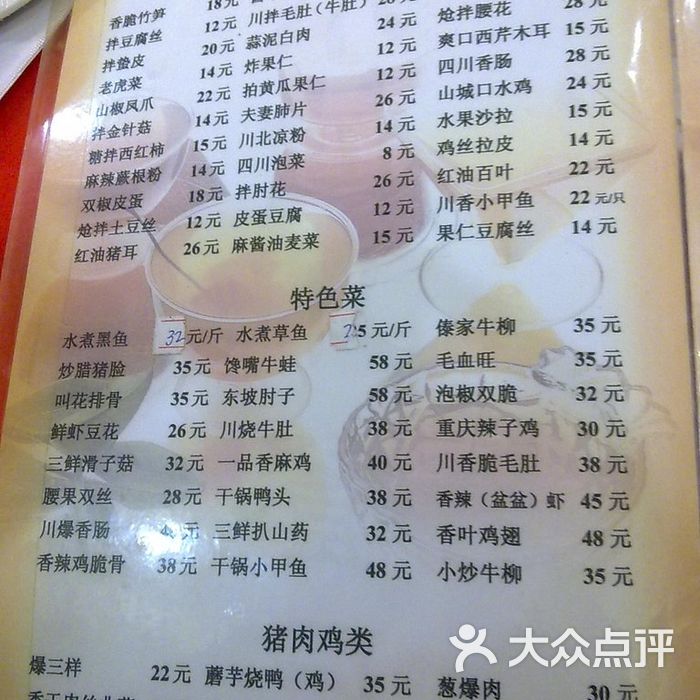 香脆竹笋 18元
拌豆腐丝 12元 川拌毛肚（牛肚） 炝拌腰花 28元
拌蛰皮 20元 蒜泥白肉 24元 爽口西芹木耳 15元
老虎菜 14元 炸果仁 12元 四川香肠 28元
山椒凤爪 22元 拍黄瓜果仁 14元 山城口水鸡 24元
拌金针菇 14元 夫妻肺片 26元 水果沙拉 15元
糖拌西红柿 15元 川北凉粉 14元 鸡丝拉皮 14元
麻辣蕨根粉 14元 四川泡菜 8元 红油百叶 22元
双椒皮蛋 18元 拌肘花 26元 川香小甲鱼 22元/只
炝拌土豆丝 12元 皮蛋豆腐 12元 果仁豆腐丝 14元
红油猪耳 26元 麻酱油麦菜 15元
特色菜
水煮黑鱼 32元/斤 水煮草鱼 25元/斤 傣家牛柳 35元
炒腊猪脸 35元 馋嘴牛蛙 58元 毛血旺 35元
叫花排骨 35元 东坡肘子 58元 泡椒双脆 32元
鲜虾豆花 26元 川烧牛肚 38元 重庆辣子鸡 30元
三鲜滑子菇 32元 一品香麻鸡 40元 川香脆毛肚 38元
腰果双丝 28元 干锅鸭头 38元 香辣（盆盆）虾 45元
川爆香肠 元 三鲜扒山药 32元 香叶鸡翅 48元
香辣鸡脆骨 38元 干锅小甲鱼 48元 小炒牛柳 35元
猪肉鸡类
爆三样 22元 蘑芋烧鸭（鸡） 35元 葱爆肉 30元
大众点评